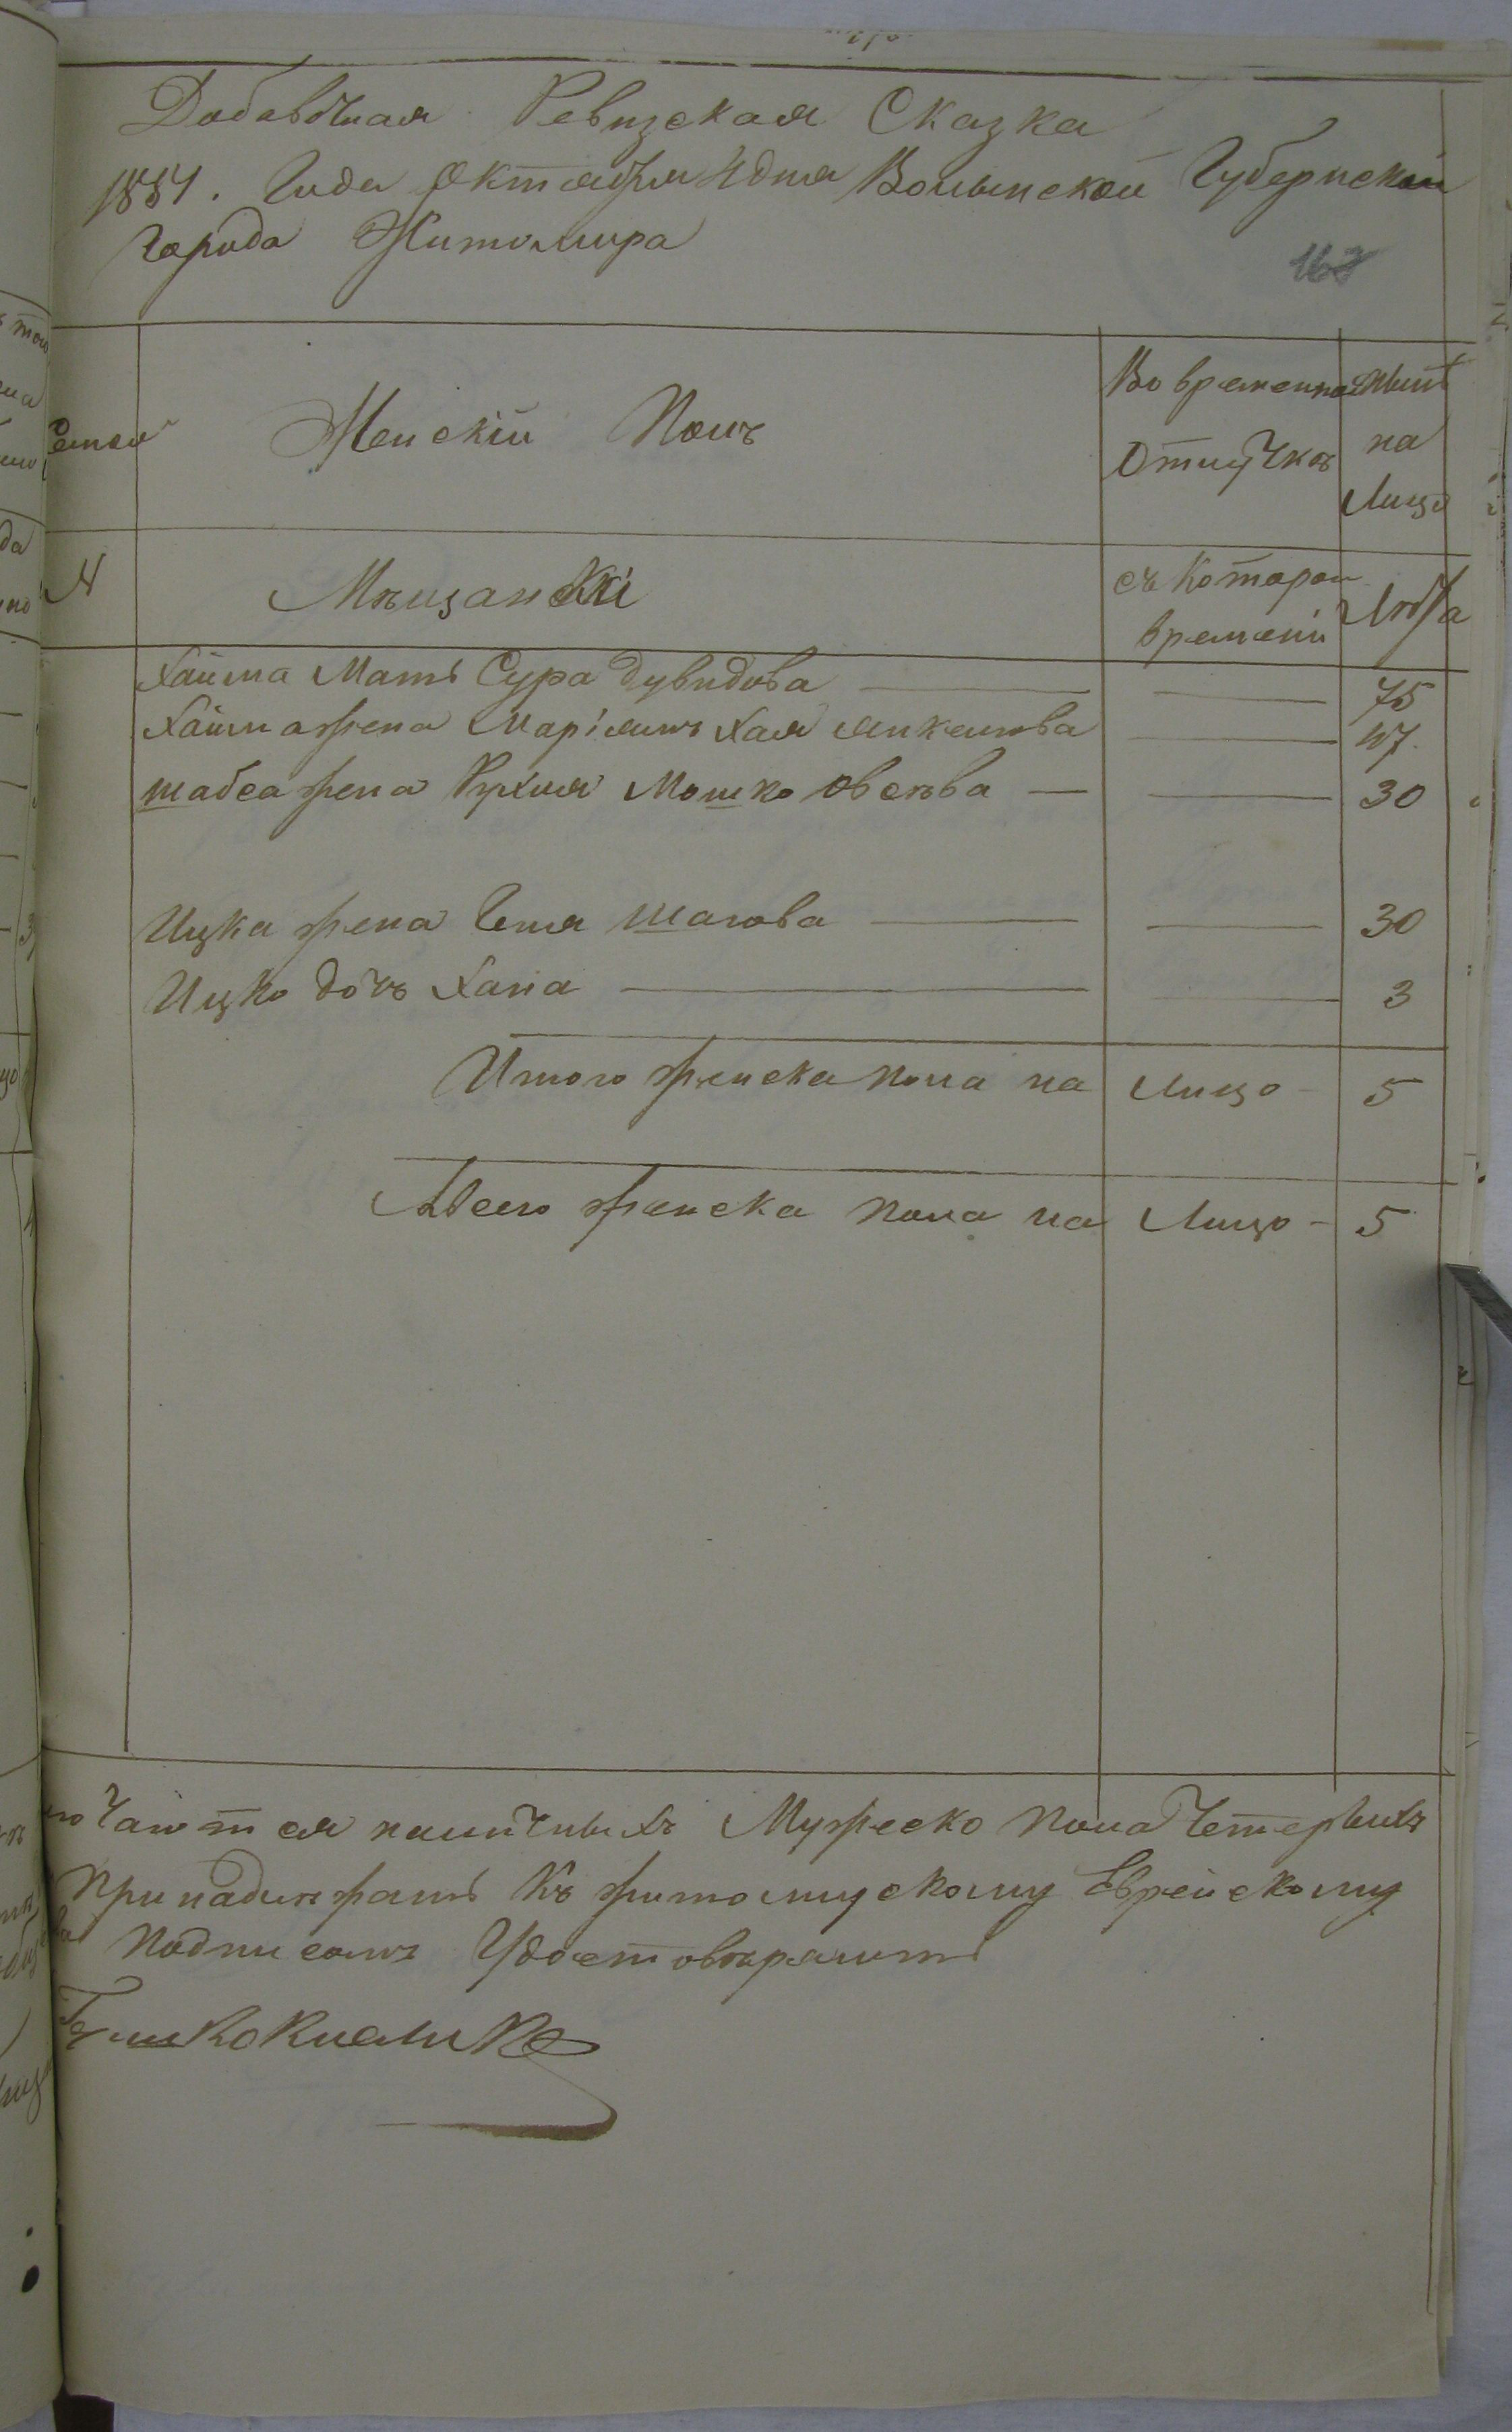 Добавочная Ревизская Сказка
1834. Года Октября 4 дня Волынской Губернской
города Житомира
163
Семей
Женскій Полъ
Во временно
Отлучкѣ
Нынѣ
на
Лицо
№
Мѣщанскі
съ Котораго
времени
Лѣта
Хаима Мать Сура Дувидова 75
Хаима жена Маріямъ Хая Янкелева 47.
шабса жена Рухля Мошко овсѣва 30
Ицка жена Геня шагова 30
Ицко дочь Хана 3
Итого женска пола на Лицо 5
Всего женска пола на Лицо 5
наличныхъ Мужеско пола Четерыхъ
принадлежать къ житомирскому Еврейскому
подписомъ Удостовѣряимъ